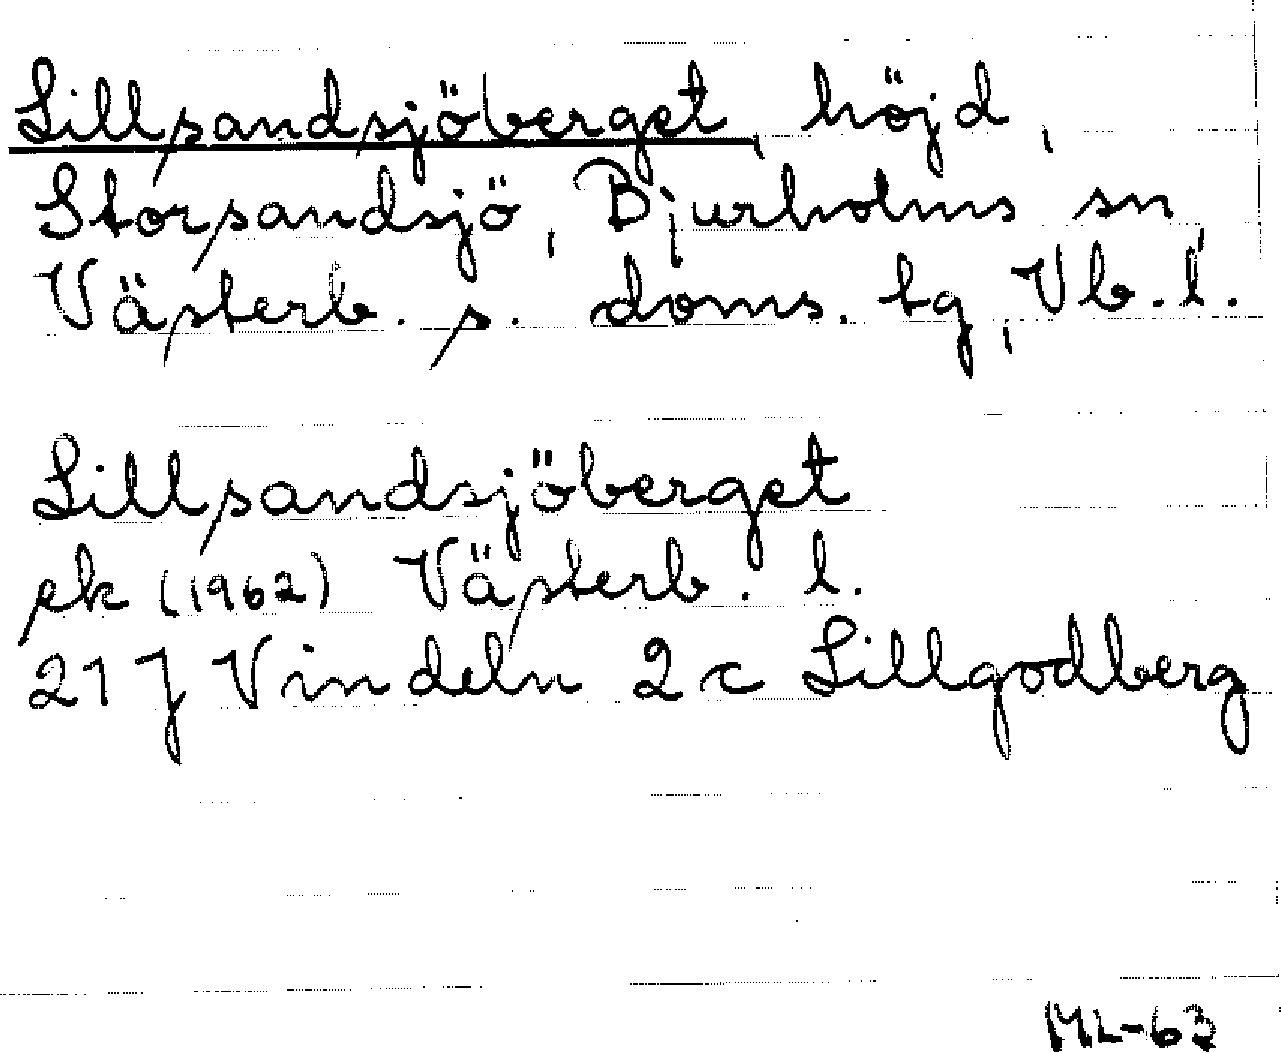 Lillsandsjöberget, höjd,
Storsandsjö, Bjurholms sn
Västerb. s. doms. tg, Vb. l.
Lillsandsjöberget
ek (1962) Västerb. l.
21 J Vindeln 2 c Lillgodberg
ML-63